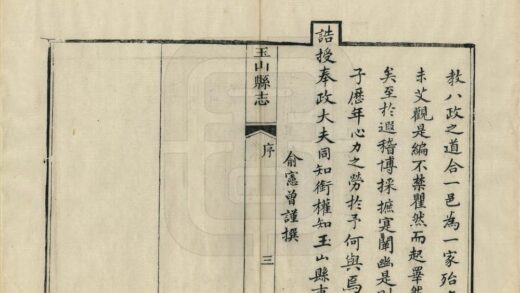 教八政之道合一邑為一家殆
未艾觀是編不禁瞿然而起睪然
矣至於遐稽博採摭寔闡幽是
子歷年心力之勞於予何與焉
誥授奉政大夫同知銜權知玉山縣
俞憲曾謹撰
玉山縣志
序
三